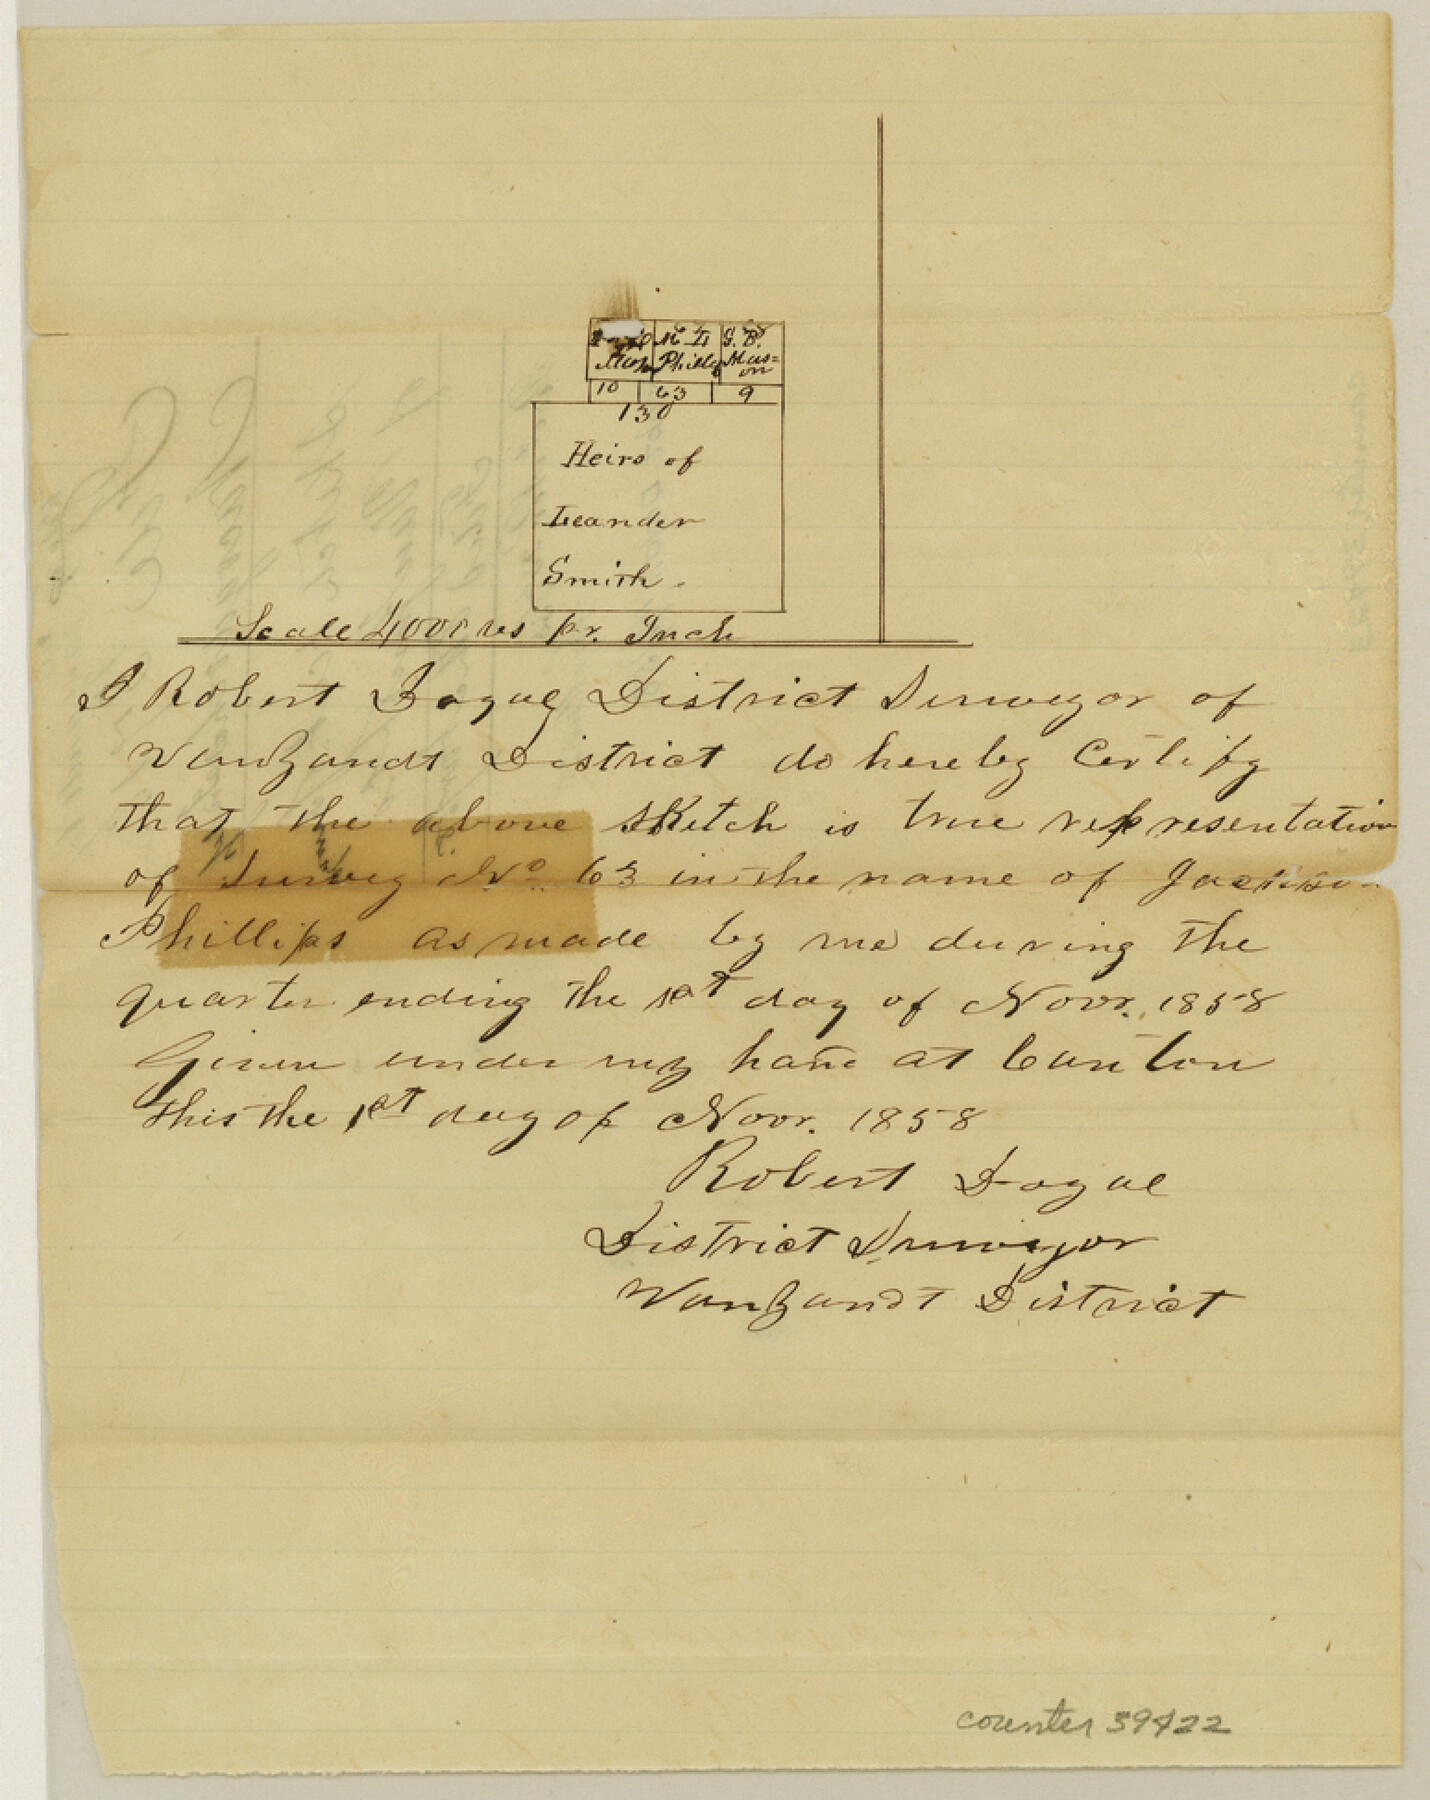 M. D. G. B.
Phillips Mas=
on
10 63 9
130
Heirs of
Leander
Smith.
Scale 4000 vs pr. Inch
I Robert Dogue District Surveyor of
VanZandt District do hereby Certify
that the above sketch is true representation
of Survey No. 63 in the name of Jackson
Phillips as made by me during the
quarter ending the 1st day of Novr. 1858
Given under my hand at Canton
this the 1st day of Novr. 1858
Robert Dogue
District Surveyor
VanZandt District
counter 39422